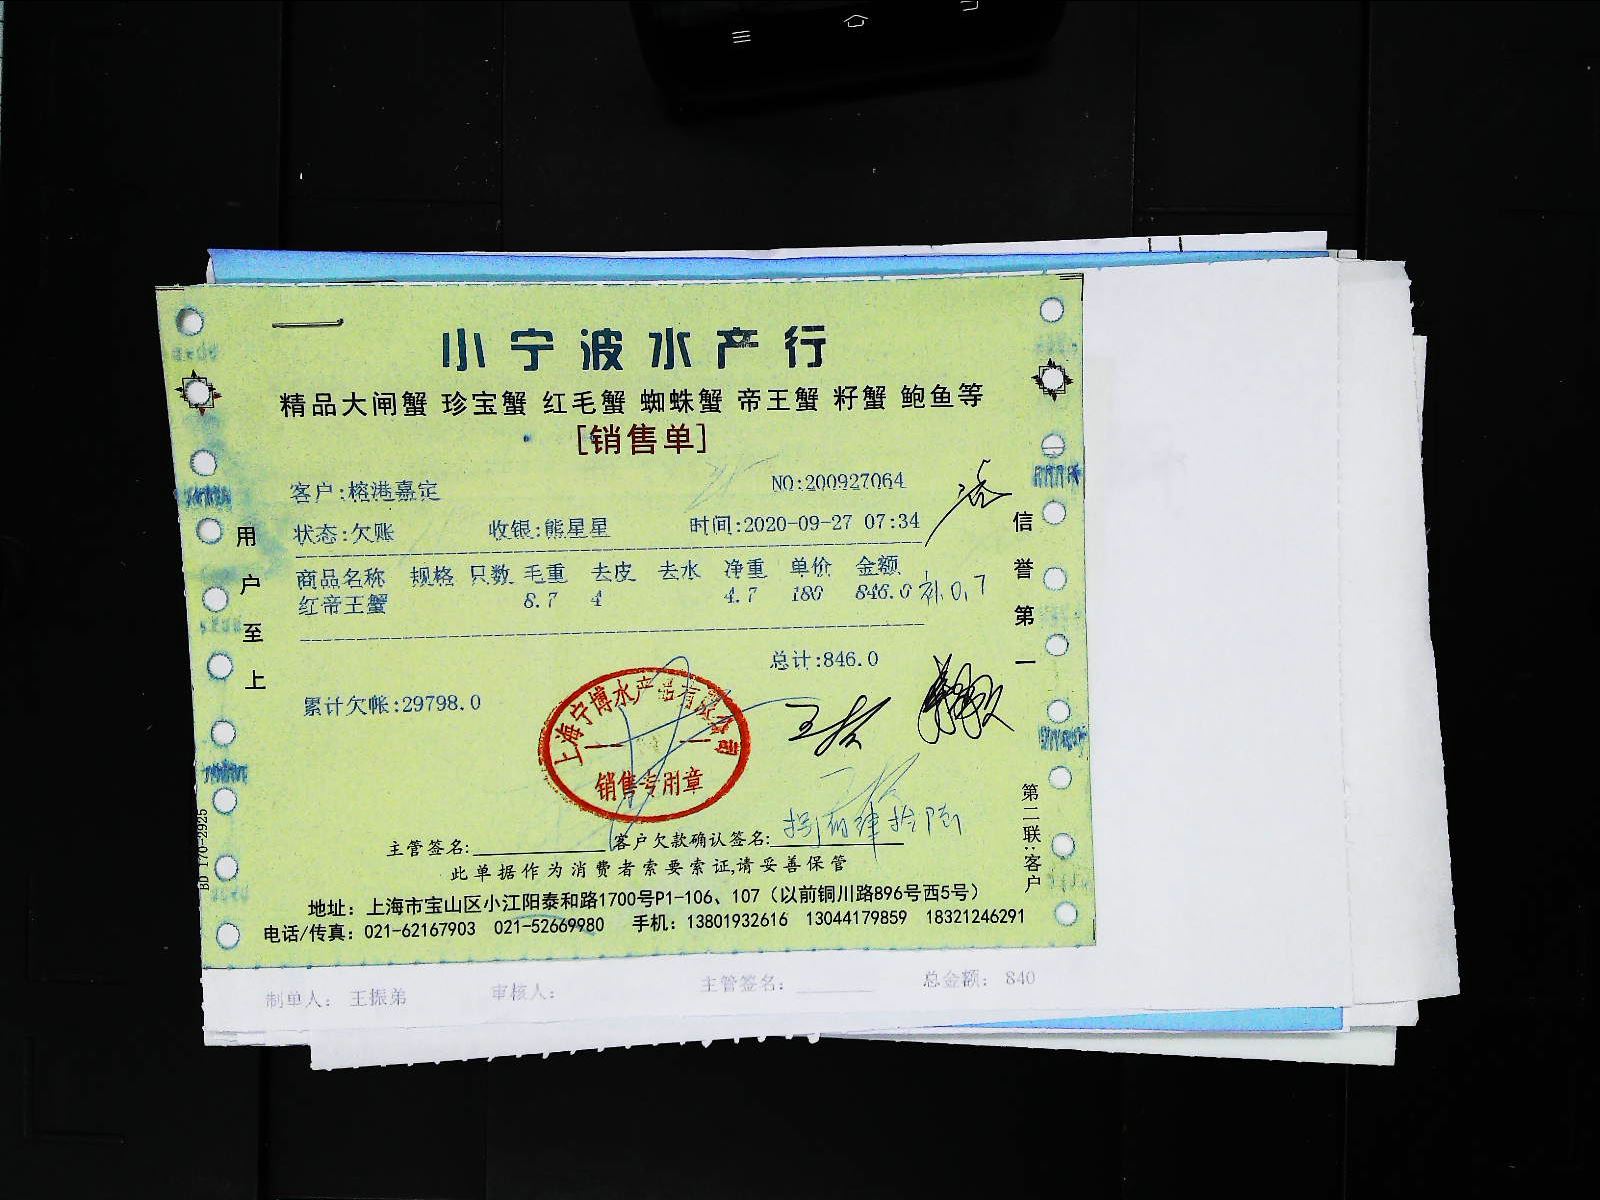 小宁波水产行
精品大闸蟹 珍宝蟹 红毛蟹 蜘蛛蟹 帝王蟹 籽蟹 鲍鱼等
[销售单]
客户:榕港嘉定 NO:200927064
状态:欠账 收银:熊星星 时间:2020-09-27 07:34
商品名称 规格 只数 毛重 去皮 去水 净重 单价 金额
红帝王蟹 8.7 4 4.7 180 846.0 补0.7
总计:846.0
累计欠帐:29798.0
上海宁博水产品有限公司
销售专用章
主管签名: 客户欠款确认签名:
此单据作为消费者索要索证,请妥善保管
地址：上海市宝山区小江阳泰和路1700号P1-106、107（以前铜川路896号西5号）
电话/传真：021-62167903 021-52669980 手机：13801932616 13044179859 18321246291
用户至上
信誉第一
第二联:客户
BD 170-2925
制单人: 王振弟 审核人: 主管签名: 总金额: 840